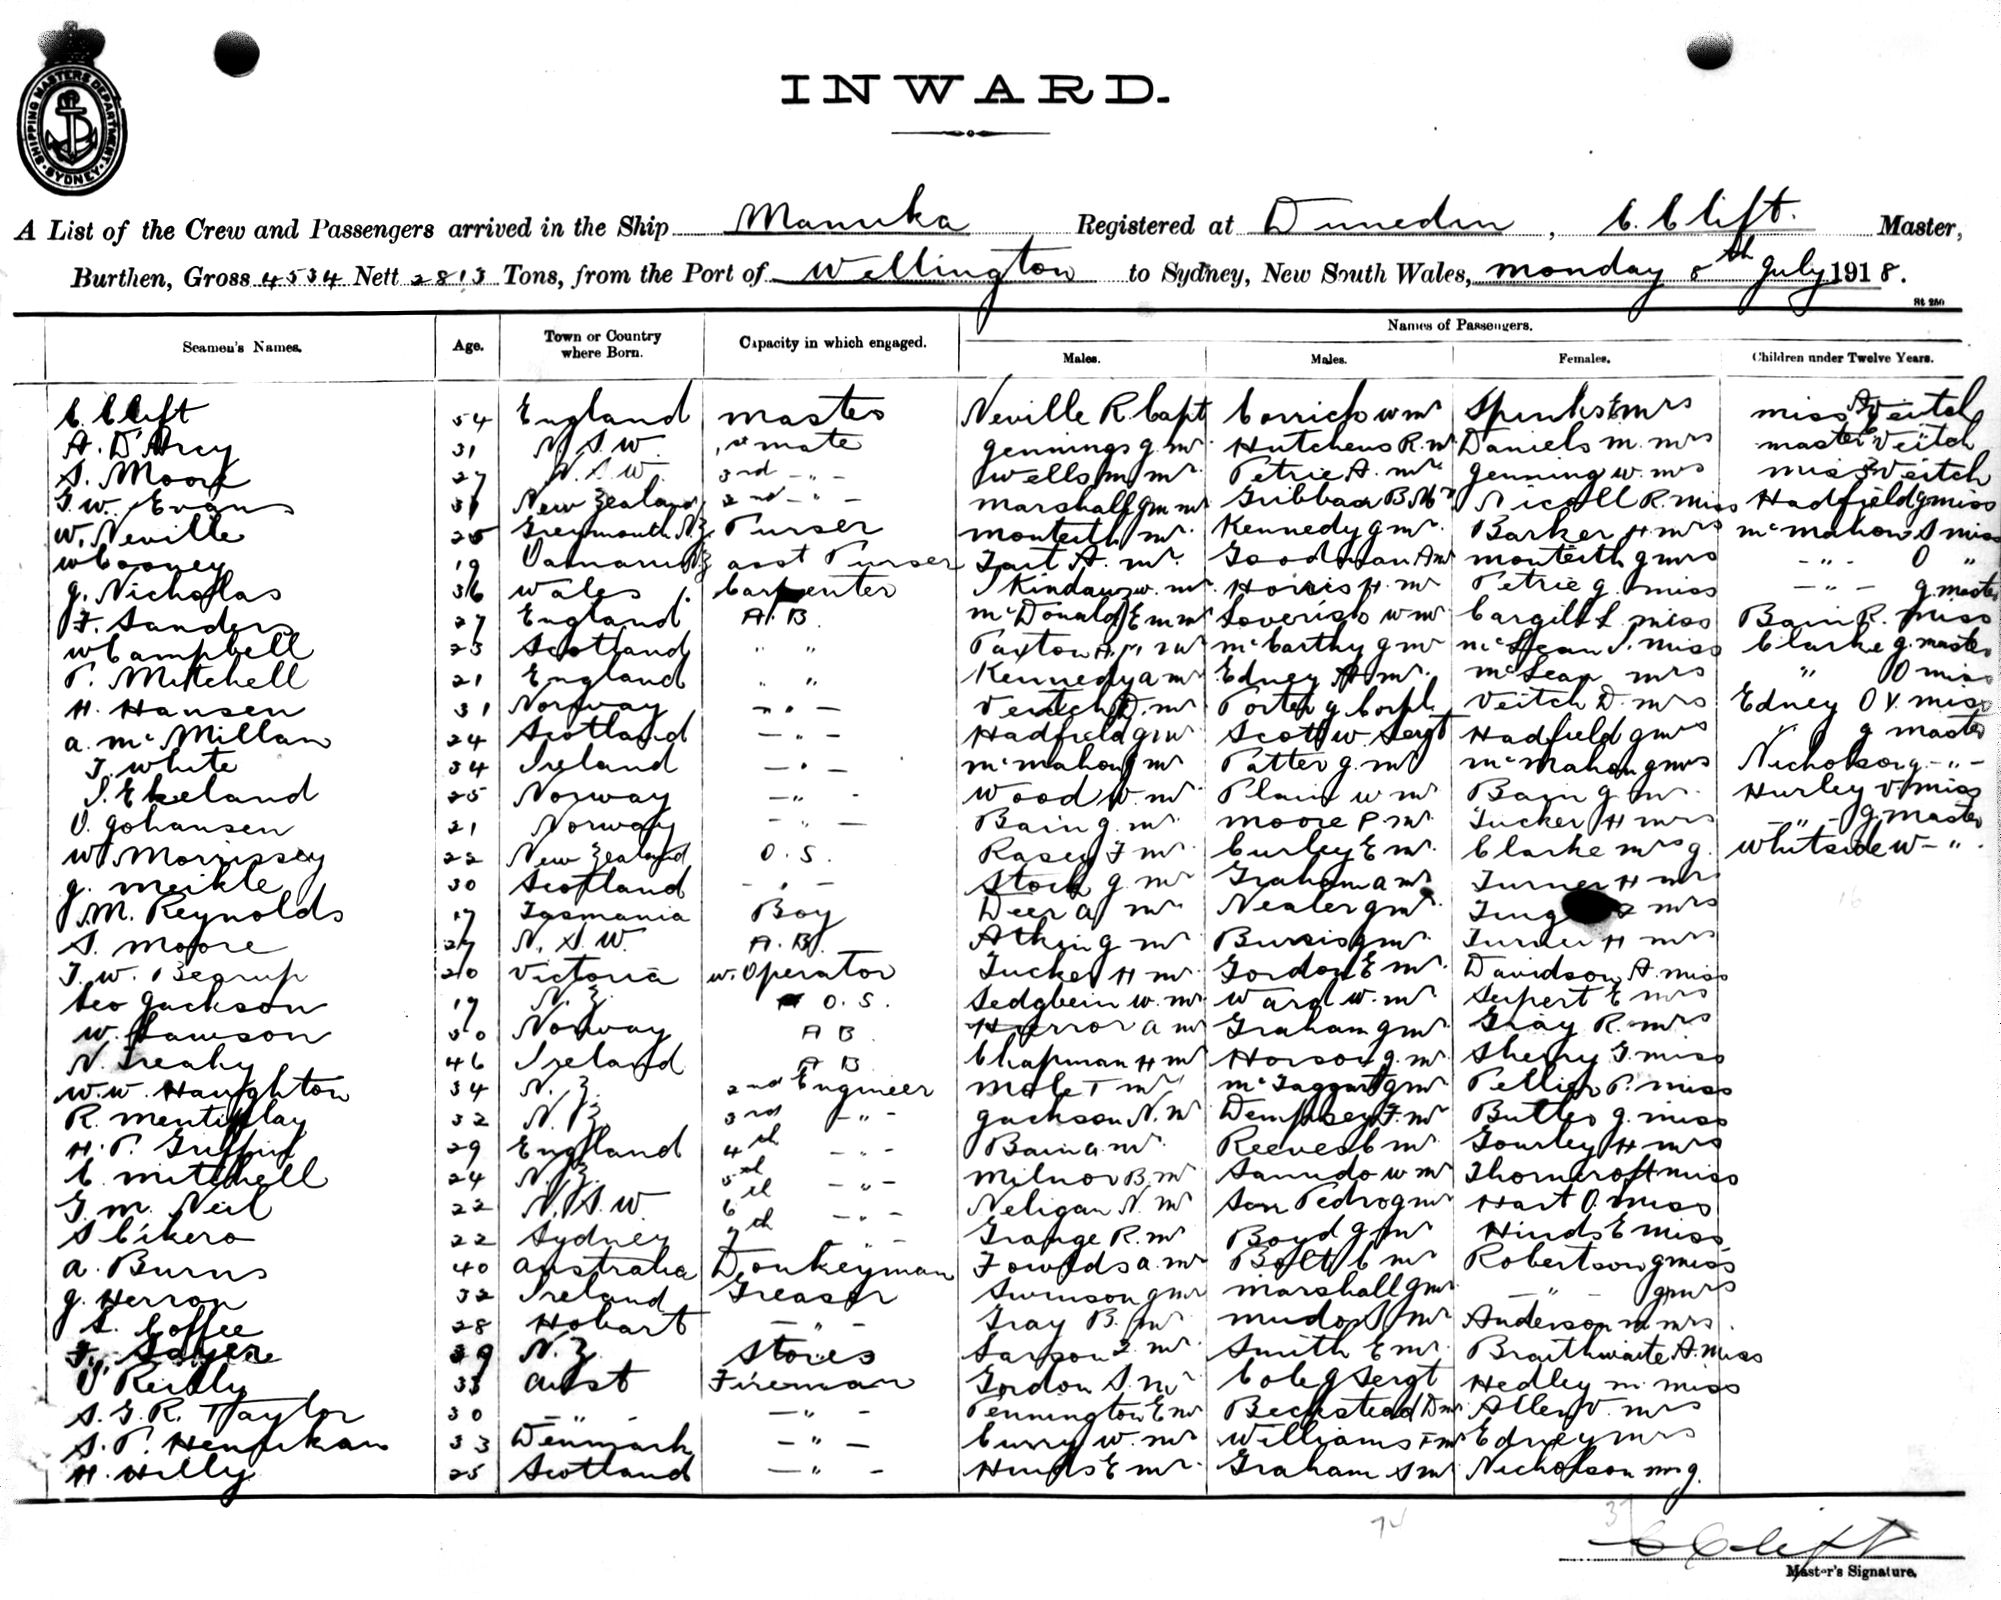 SHIPPING MASTERS DEPARTMENT SYDNEY
INWARD.
A List of the Crew and Passengers arrived in the Ship Manuka Registered at Dunedin, C. Clift. Master,
Burthen, Gross 4534 Nett 2813 Tons, from the Port of Wellington to Sydney, New South Wales, monday 8th July 1918.
St 250
Names of Passengers.
Seamen's Names. Age. Town or Country where Born. Capacity in which engaged. Males. Males. Females. Children under Twelve Years.
C Clift 54 England master Neville R. Capt Corrick w mr Spinks E mrs miss A Veitch
A. D'Arcy 31 N.S.W. 1st mate Jennings J. mr Hutchens R. mr Daniels M. mrs master Veitch
S. Moore 27 N.S.W. 3rd - " - Wells M mr Petrie A. mr Jenning W. mrs miss Veitch
G. W. Evans New Zealand 2nd - " - Marshall J M mr Nicoll R. miss Hadfield J miss
W. Neville Greymouth N.Z. Purser Monteith mr. Kennedy J mr. Barker H mrs McMahon S miss
W Cooney 19 Oamaru N.Z. asst Purser Tait A. mr. Goodman A mr Monteith J mrs - " - O "
J. Nicholas 36 Wales Carpenter W. mr. Morris H. mr Petrie J. miss - " - J. master
F. Sanders 27 England A.B. McDonald E mr W mr Cargill L. miss Bain R. miss
W Campbell 23 Scotland " " Paxton mr McCarthy J mr McLean S. miss Clarke J. master
P. Mitchell 21 England " " Kennedy A mr Edney A mr. McLean mrs " O miss
H. Hansen 31 Norway - " - Veitch D. mr Porter J. Corpl. Veitch D. mrs Edney O V. miss
A. McMillan 24 Scotland - " - Hadfield J mr Scott W. Sergt Hadfield J mrs " J master
J. White 34 Ireland - " - McMahon J mr J. mr McMahon J mrs Nicholson J. - " -
S. Ekeland 25 Norway - " - Wood W. mr Plain W mr Bain J mr. Hurley V. miss
O. Johansen 21 Norway - " - Bain J. mr Moore P mr. Tucker H mrs - " - J. master
W Morrissey 22 New Zealand O.S. F mr Curley E mr. Clarke mrs J. Whitside W - " -
J. Meikle 30 Scotland - " - Stock J mr Graham A mr Turner H mrs
M. Reynolds 17 Tasmania Boy Deer A mr J mr. mrs
S. Moore 27 N.S.W. A.B. J mr J mr. Turner H mrs
J. W. Begrup 20 Victoria W. Operator Tucker H mr Gordon E mr. Davidson A. miss
Geo Jackson 17 N.Z. O.S. W. mr Ward W. mr Seipert E mrs
W. Lawson 50 Norway AB A mr Graham J mr. Gray R. mrs
N. Treahy 46 Ireland AB Chapman H mr J. mr Sherry G miss
W. W. Haughton 34 N.Z. 2nd Engineer Mole T mr McTaggart J mr Pellier P. miss
R. Mentiplay 32 N.Z. 3rd - " - Jackson N. mr Dempsey F. mr Butler J. miss
H. P. Griffin 29 England 4th - " - Bain A. mr Reeves C mr Gourley H mrs
C. Mitchell 24 N.Z. 5th - " - Milnor B. mr W mr Thorncroft miss
G. M. Neil 22 N.S.W. 6th - " - Neligan N. mr San Pedro J mr Hart O. miss
S Cikero 22 Sydney 7th - " - Grange R. mr Boyd J mr Hinds E miss
A. Burns 40 Australia Donkeyman Fowlds A. mr Bolt C mr Robertson J miss
J. Herron 32 Ireland Greaser Swinson J mr Marshall J mr - " - J mrs
L. Coffee 28 Hobart - " - Gray B. mr mr Anderson M mrs.
F. Sayer 39 N.Z. Stores mr. Smith E mr. Braithwaite A. miss
Reilly 33 Aust Fireman Gordon S. mr Cole J Sergt Hedley M. miss
S. G. R. Taylor 30 - " - - " - Pennington E mr Beckstead D mr Allen V. mrs
S. P. 33 Denmark - " - Curry W. mr Williams F mr Edney mrs
H. Hilly 25 Scotland - " - Hinds E mr. Graham S mr Nicholson mrs J.
C Clift
Master's Signature.